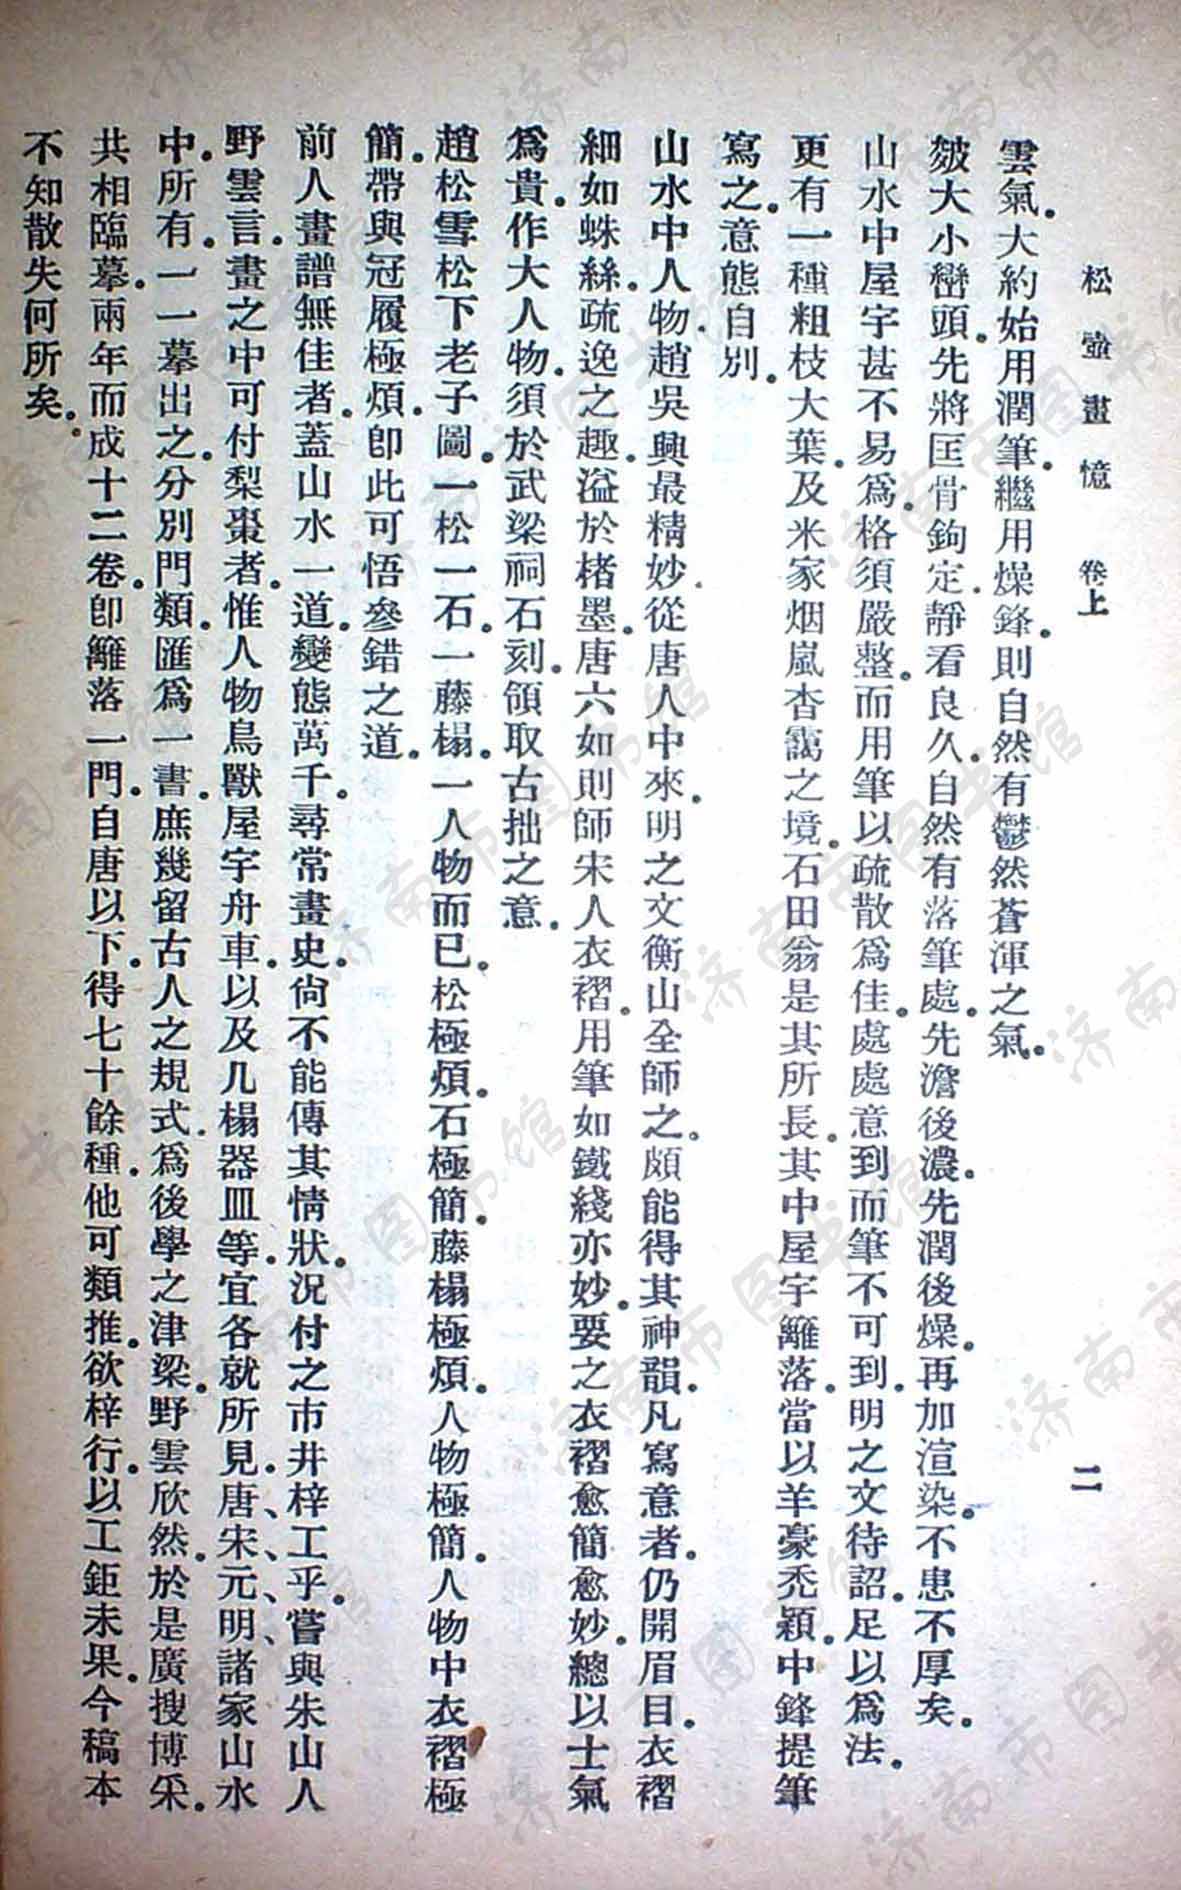 松壺畫憶 卷上 二
雲氣。大約始用潤筆。繼用燥鋒。則自然有鬱然蒼渾之氣。
皴大小巒頭。先將匡骨鉤定。靜看良久。自然有落筆處。先澹後濃。先潤後燥。再加渲染。不患不厚矣。
山水中屋宇甚不易爲。格須嚴整。而用筆以疏散爲佳。處處意到而筆不可到。明之文待詔。足以爲法。
更有一種粗枝大葉。及米家烟嵐杳靄之境。石田翁是其所長。其中屋宇籬落。當以羊豪禿穎。中鋒提筆
寫之。意態自別。
山水中人物。趙吳興最精妙。從唐人中來。明之文衡山全師之。頗能得其神韻。凡寫意者。仍開眉目。衣褶
細如蛛絲。疏逸之趣。溢於楮墨。唐六如則師宋人衣褶。用筆如鐵綫亦妙。要之衣褶愈簡愈妙。總以士氣
爲貴。作大人物。須於武梁祠石刻。領取古拙之意。
趙松雪松下老子圖。一松一石。一藤榻。一人物而已。松極煩。石極簡。藤榻極煩。人物極簡。人物中衣褶極
簡。帶與冠履極煩。卽此可悟參錯之道。
前人畫譜無佳者。蓋山水一道。變態萬千。尋常畫史。尙不能傳其情狀。況付之市井梓工乎。嘗與朱山人
野雲言。畫之中可付梨棗者。惟人物鳥獸屋宇舟車。以及几榻器皿等。宜各就所見。唐、宋、元、明、諸家山水
中。所有。一一摹出之。分別門類。匯爲一書。庶幾留古人之規式。爲後學之津梁。野雲欣然。於是廣搜博采。
共相臨摹。兩年而成十二卷。卽籬落一門。自唐以下。得七十餘種。他可類推。欲梓行。以工鉅未果。今稿本
不知散失何所矣。